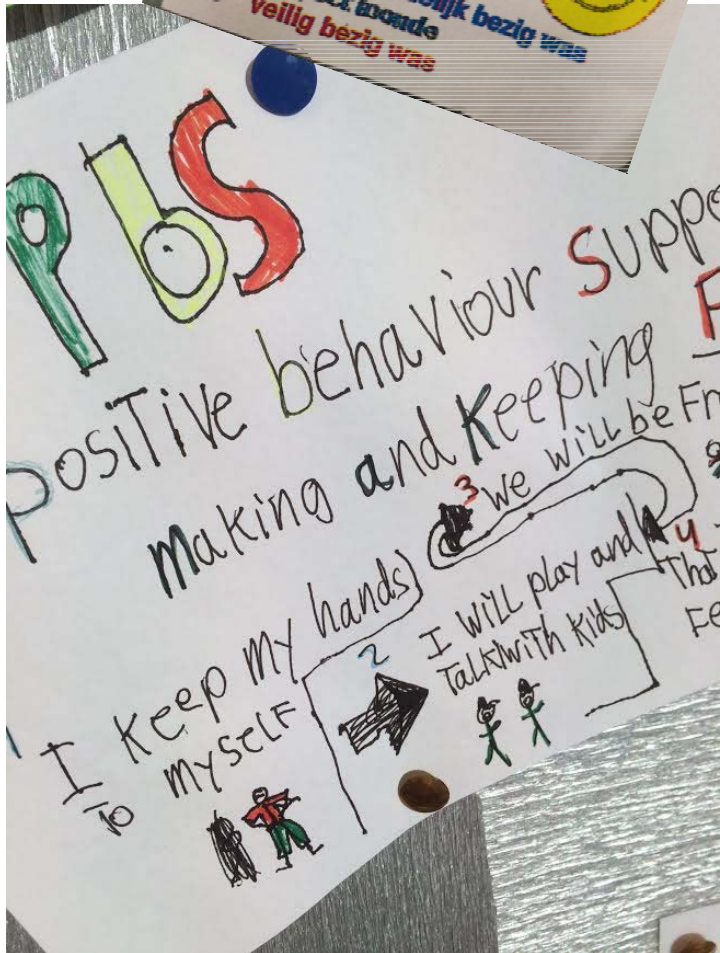 lijk bezig was
toonde
veilig bezig was
PbS
Positive behaviour Suppo
Making and Keeping F
3 we will be Fr
I keep my hands
To myself
2 I will play and
Talk with kids
4
That
Fe